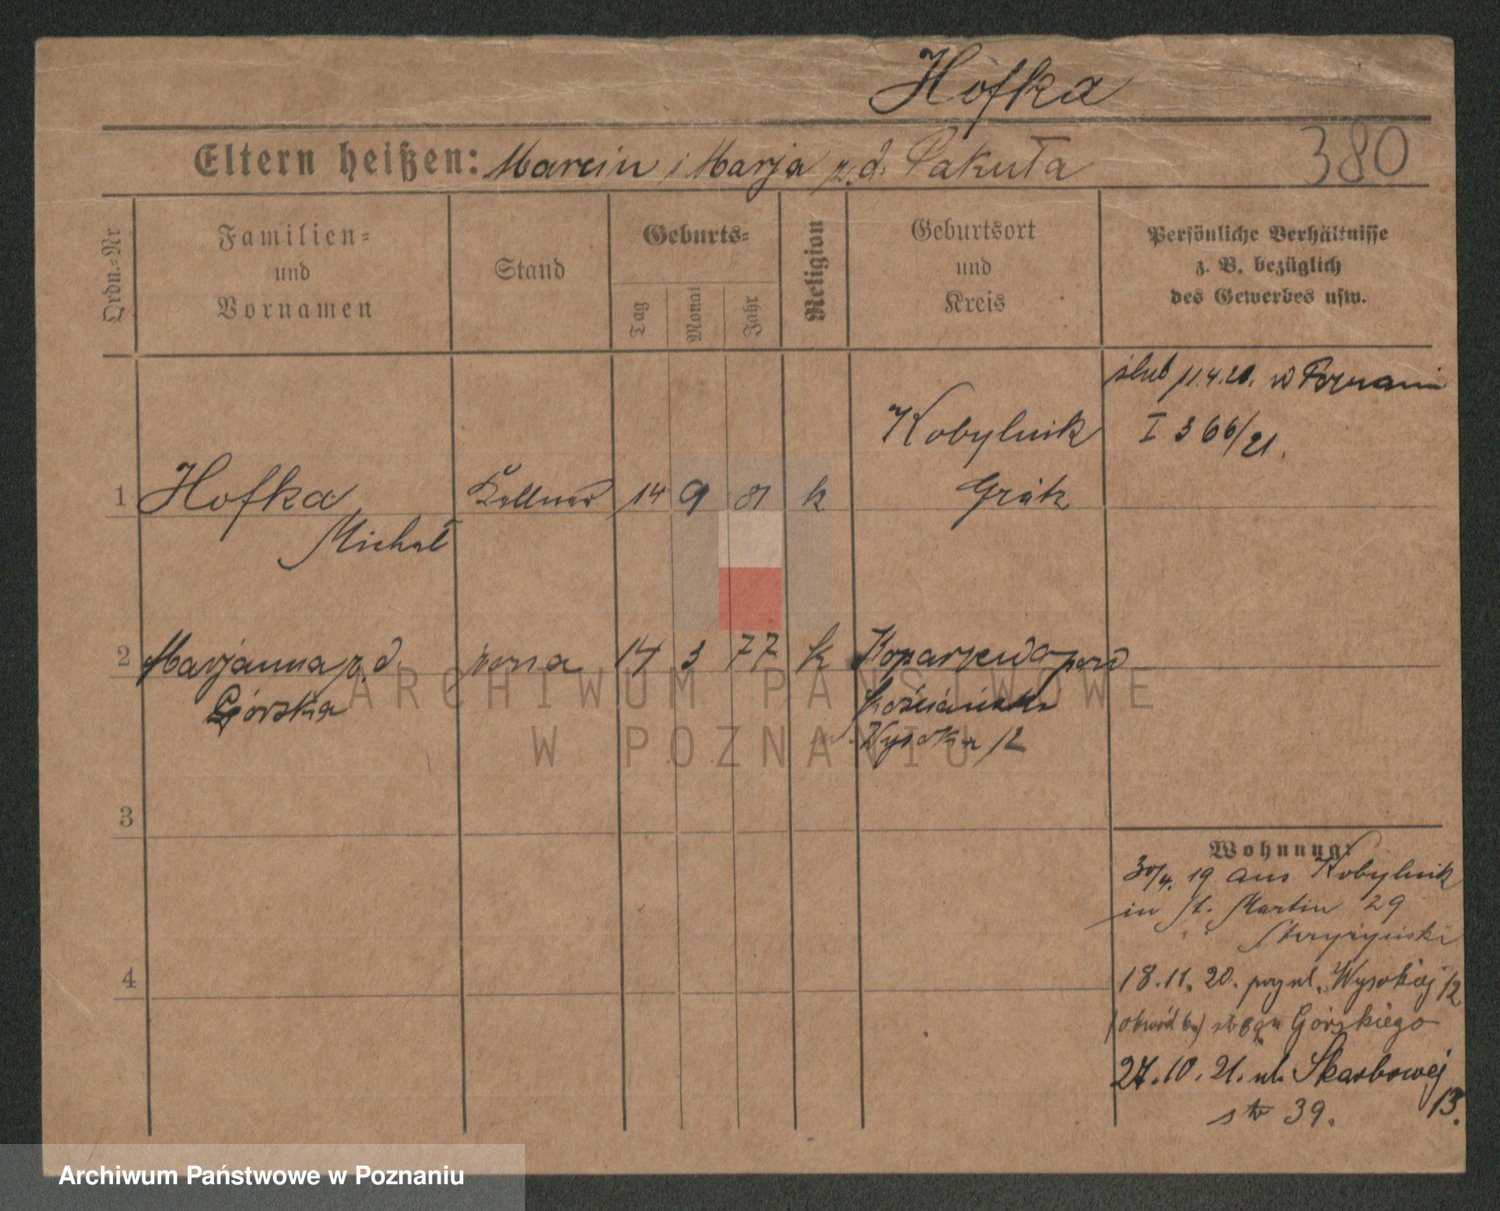 Hofka
380
Eltern heißen: Marcin i Marja z d. Pakuła
Ordn.=Nr
Familien=
und
Vornamen
Stand
Geburts=
Tag
Monat
Jahr
Religion
Geburtsort
und
Kreis
Persönliche Verhältnisse
z. B. bezüglich
des Gewerbes usw.
ślub 11.4.21. w Poznaniu
I 366/21.
1 Hofka Kellner 14 9 81 k Kobylnik
Michał Grätz
2 Marjanna z d. żona 14 3 77 k
Górska
Wysoka 12
3
4
Wohnung:
30/4. 19 aus Kobylnik
in St. Martin 29
18.11.20. przy ul. Wysokiej 12
Górskiego
27.10.21. ul. Skarbowej
13.
str 39.
ARCHIWUM PAŃSTWOWE
W POZNANIU
Archiwum Państwowe w Poznaniu